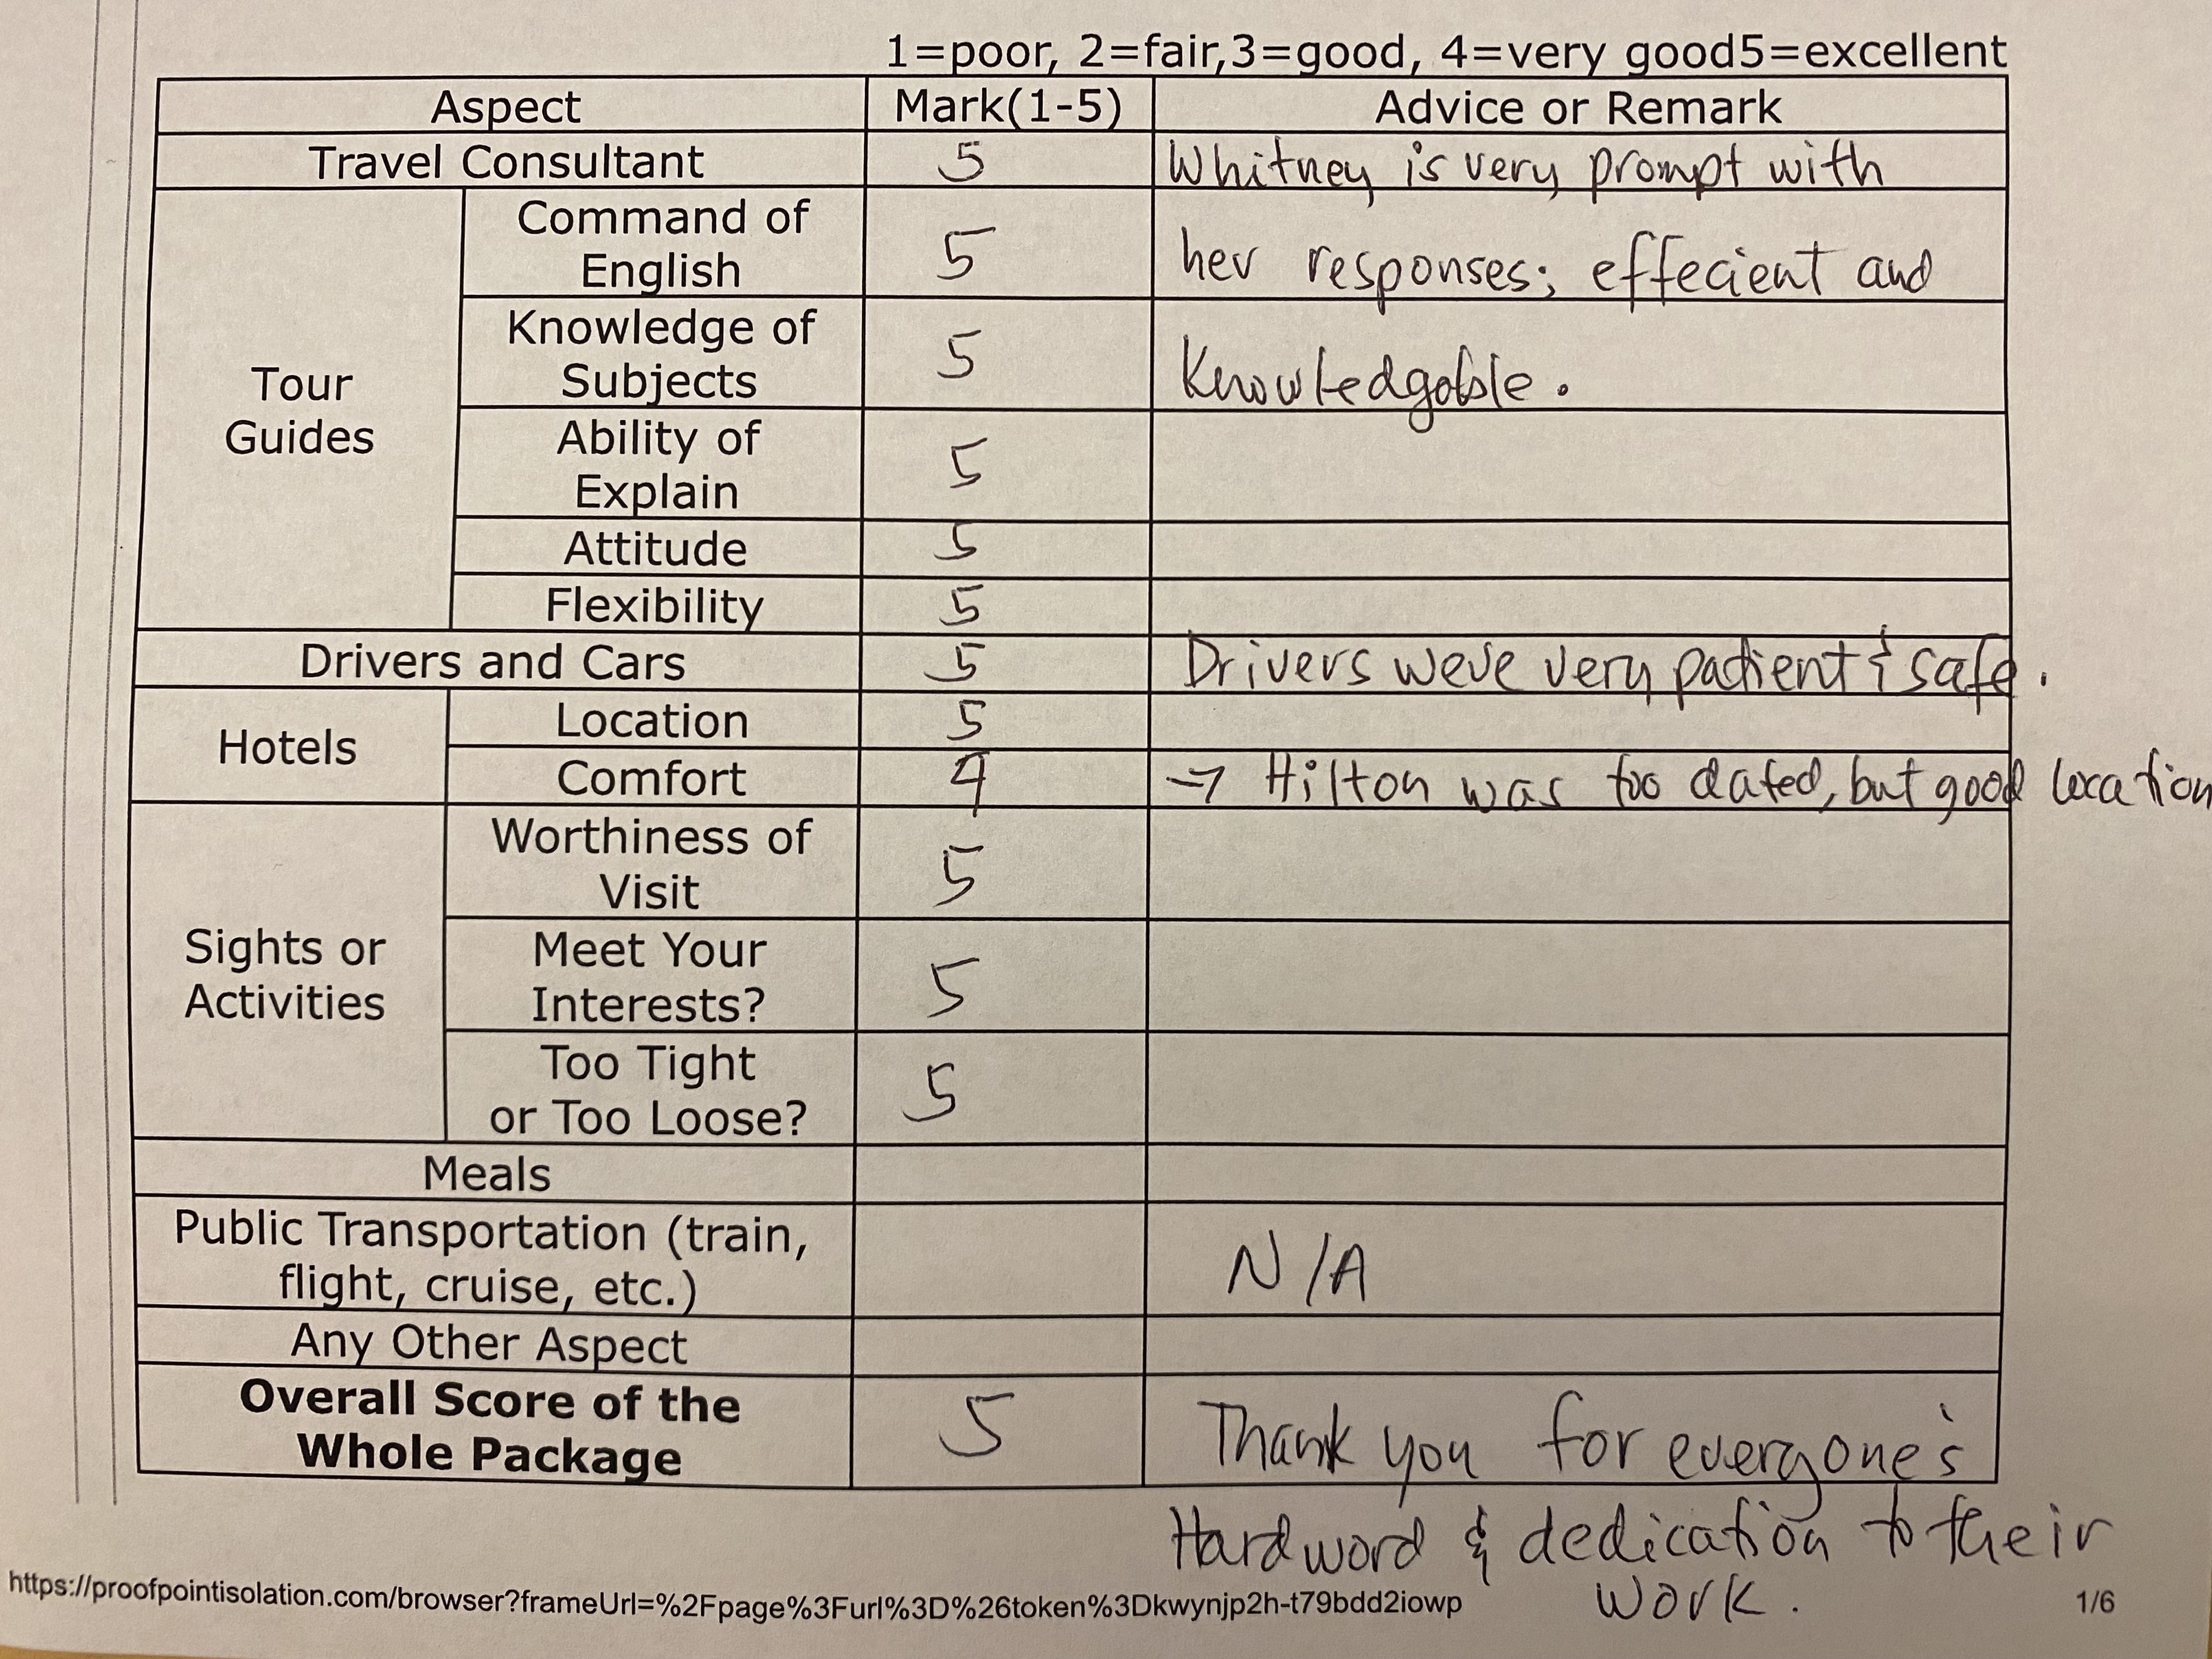 1=poor, 2=fair,3=good, 4=very good5=excellent
Aspect Mark(1-5) Advice or Remark
Travel Consultant 5 Whitney is very prompt with
Tour Guides
Command of
English 5 her responses; effecient and
Knowledge of
Subjects 5 Knowledgable.
Ability of
Explain 5
Attitude 5
Flexibility 5
Drivers and Cars 5 Drivers were very patient & safe.
Hotels
Location 5
Comfort 4 → Hilton was too dated, but good location
Sights or
Activities
Worthiness of
Visit 5
Meet Your
Interests? 5
Too Tight
or Too Loose? 5
Meals
Public Transportation (train,
flight, cruise, etc.) N/A
Any Other Aspect
Overall Score of the
Whole Package 5 Thank you for everyone's
Hardword & dedication to their
work.
https://proofpointisolation.com/browser?frameUrl=%2Fpage%3Furl%3D%26token%3Dkwynjp2h-t79bdd2iowp 1/6